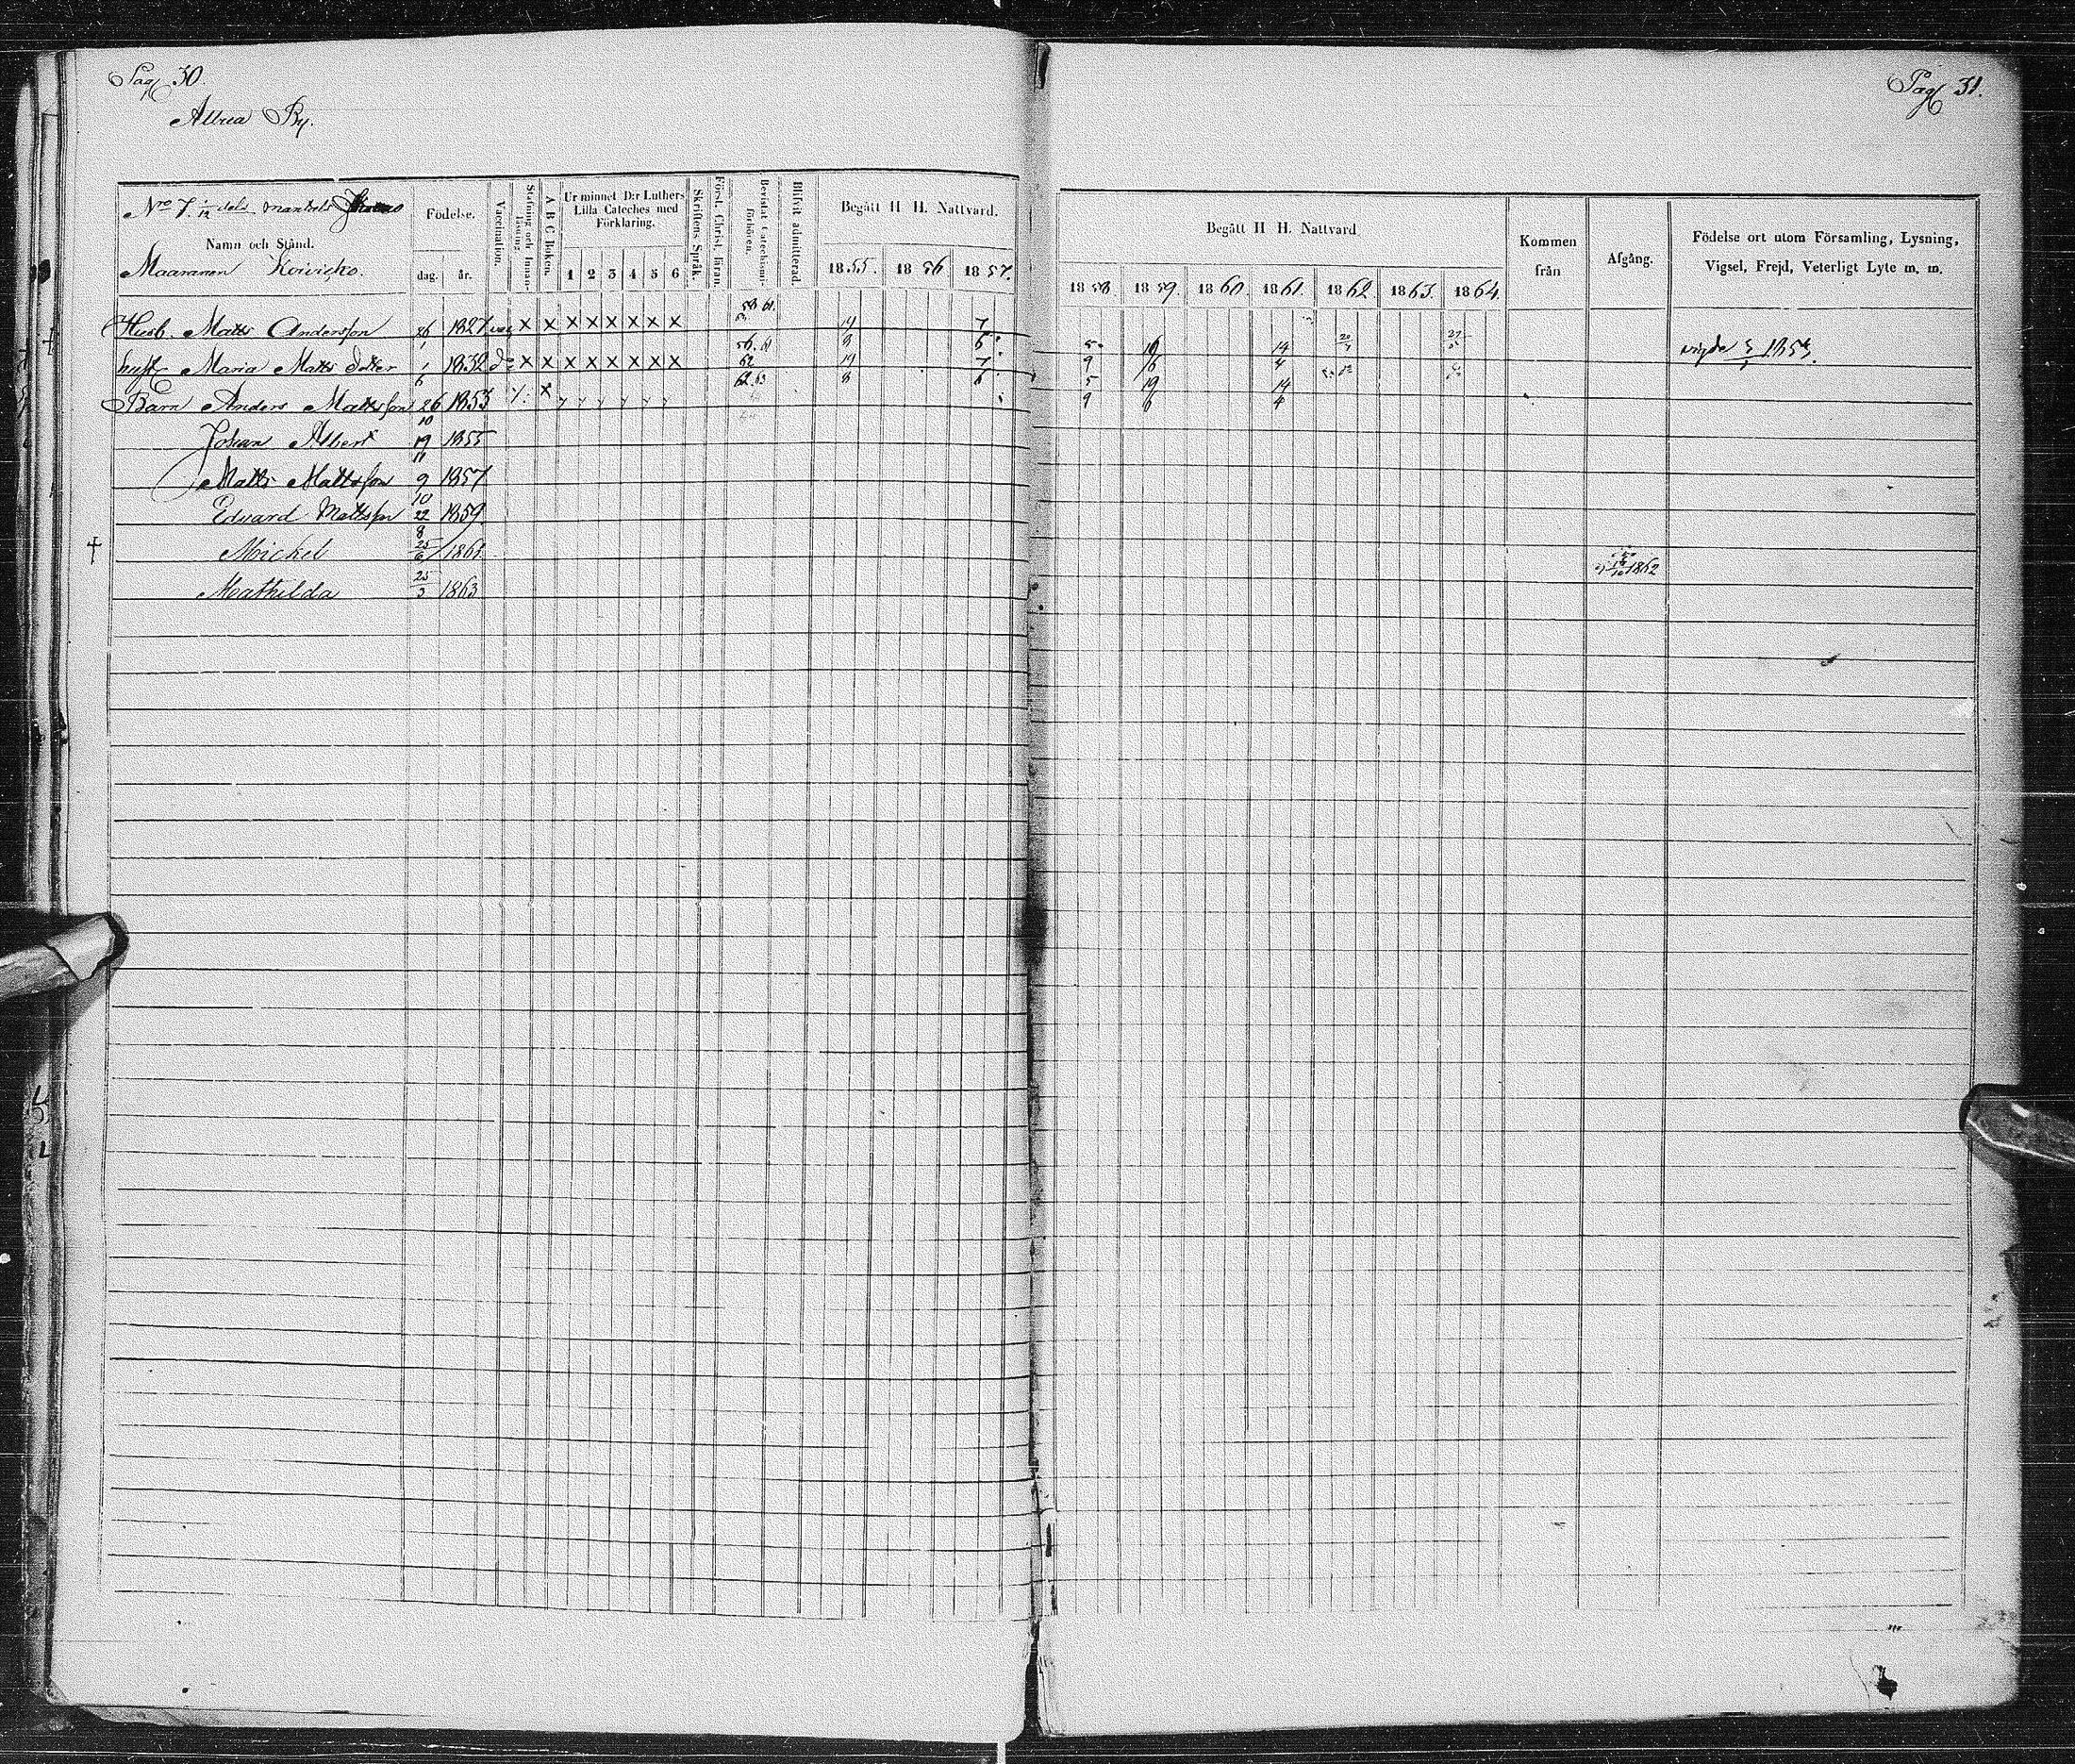 Pag 30.
By.
Pag 31.
Nro 7. 1/12 dels mantals
Namn och Stånd.
Maaranen Koivicko.
Födelse.
dag. år.
Vaccination.
Stafning och Innanläsning
A B C Boken.
Ur minnet D:r Luthers
Lilla Cateches med
Förklaring.
1 2 3 4 5 6
Skriftens Språk.
Förel. Christ. läran.
Bevistat Catechismi-
förhören.
Blifvit admitterad.
Begått H H. Nattvard.
1855. 1856 1857.
Begått H H. Nattvard
1858. 1859. 1860. 1861. 1862. 1863. 1864.
Kommen
från
Afgång.
Födelse ort utom Församling, Lysning,
Vigsel, Frejd, Veterligt Lyte m. m.
Husb. Matts Andersson 26/1 1827 vac x x x x x x x x 19/8 7/6 5/9 19/6 14/4
hust Maria Matts dotter 1/6 1832 do x x x x x x x x 62 19/8 7/6 5/9 19/6 14/4 vigde 1853.
Barn Anders Mattsson 26/10 1853
Johan Albert 19/11 1855
Matts Mattsson 9/10 1857
Eduard Mattsson 22/8 1859
† Mickel 25/6 1861 1862
Mathilda 25/3 1863